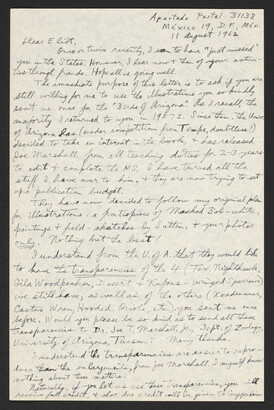 Apartado Postal 31138
México 19, D.F., Méx.
11 August 1962
Dear Eliot,
Once or twice recently, I seem to have "just missed"
you in the States. However, I hear now & then of your activi-
ties through friends. Hope all is going well.
The immediate purpose of this letter is to ask if you are
still willing for me to use the illustrations you so kindly
sent me once for the "Birds of Arizona." As I recall the
majority I returned to you in 1957-?. Since then, the Univ.
of Arizona has (under competition from Tempe, doubtless!)
decided to take an interest in the book, & has released
Joe Marshall from all teaching duties for 2-3 years
to edit & complete the MS. I have turned all the
stuff I have over to him, & they are now trying to set
up a publication budget.
They have now decided to follow my original plan
for illustrations: a frontispiece of Masked Bob-white,
paintings & field-sketches by Sutton, & your photos
only. Nothing but the best!
I understand from the U. of A. that they would like
to have the transparencies of the 4 (Tex. Nighthawk,
Gila Woodpecker, Desert & Rufous-winged Sparrows)
we still have, as well as of the others (Roadrunner,
Cactus Wren, Hooded Oriole, etc.) you sent me once
before. Would you please be so kind as to send all these
transparencies to Dr. Joe T. Marshall, Jr., Dept. of Zoology,
University of Arizona, Tucson? Many thanks.
I understand the transparencies are easier to repro-
duce than the enlargements, from Joe Marshall. I myself know
nothing about these matters.
Naturally, if you let us use these transparencies, you will
receive full credit, & also due credit will be given to